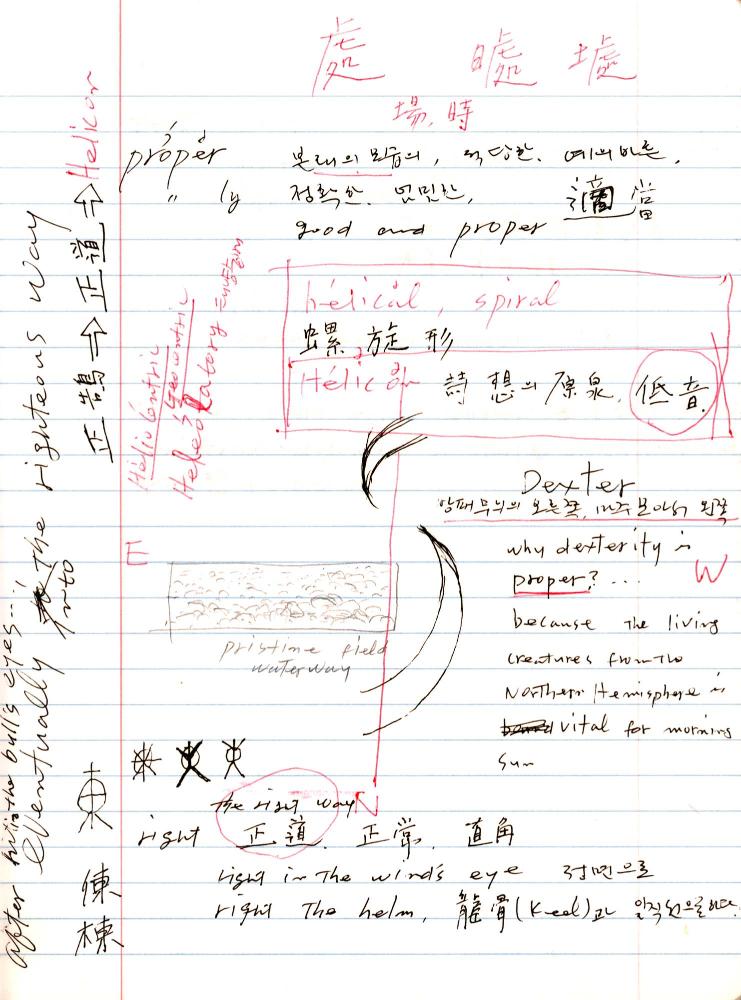 處 噓 墟
場, 時
proper 본래의 모습의, 적당한. 예의바른,
" ly 정확한. 엄밀한, 適當
good and proper
helical, spiral
螺 旋 形
Helicon 詩 想의 原泉, 低音
Dexter
오른쪽, 왼쪽
why dexterity is
proper? ...
because the living
creatures from the
Northern Hemisphere is
vital for morning
sun
E
W
N
pristine field
waterway
the right way
right 正道, 正常, 直角
right in the wind's eye 정면으로
right the helm, 龍骨(Keel)과 일직선으로하다.
Helio Centric
Geocentric
正鵠 ⇨ 正道 ⇨ Helicon
after hit in the bull's eyes...!
eventually into The righteous way
東
倲
棟